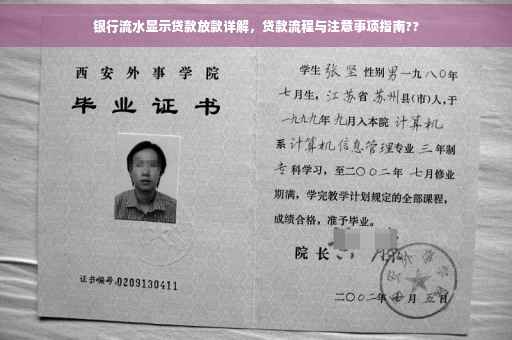 银行流水显示贷款放款详解，贷款流程与注意事项指南??
西安外事学院
毕业证书
证书编号:0209130411
学生 张坚 性别 男 一九八〇年
七月生，江苏省 苏州县(市)人，于
一九九九年 九月入本院 计算机
系 计算机信息管理专业 三 年制
专 科学习，至二〇〇二年 七月修业
期满，学完教学计划规定的全部课程，
成绩合格，准予毕业。
院长
二〇〇二年 月 五日